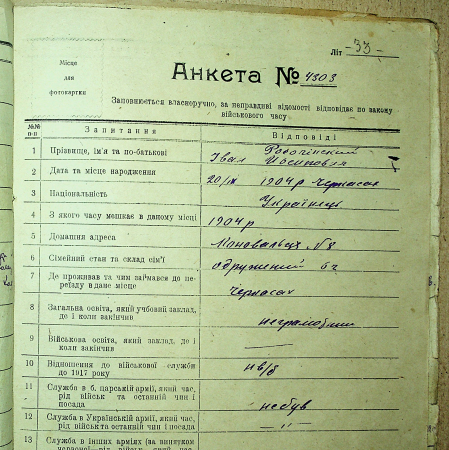 Літ -33-
Місце
для
фотокартки
Анкета № 4303
Заповнюється власноручно, за неправдиві відомості відповідає по закому
військового часу
№№
п-п
Запитання
Відповіді
1 Прізвище, ім'я та по-батькові
Іван Йосипович
2 Дата та місце народження
20/IX 1904 р Черкаси
3 Національність
Українець
4 З якого часу мешкає в даному місці
1904 р
5 Домашня адреса
№ 8
6 Сімейний стан та склад сім'ї
одружений
7 Де проживав та чим займався до пе-
реїзду в дане місце
Черкасах
8 Загальна освіта, який учбовий заклад,
де і коли закінчив
неграмотний
9 Військова освіта, який заклад, де і
коли закінчив
—
10 Відношення до військової служби
до 1917 року
нв/б
11 Служба в б. царській армії, який час,
рід військ та останній чин і
посада
небув
12 Служба в Українській армії, який час,
рід військ та останній чин і посада
— „ —
13 Служба в інших арміях (за винятком